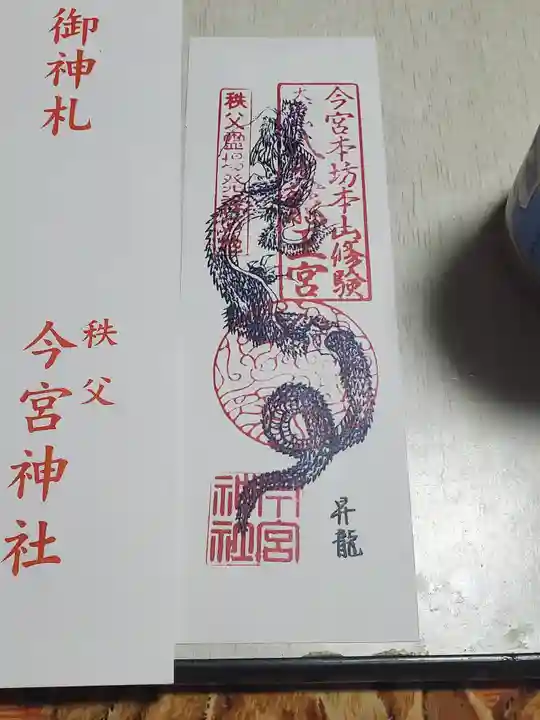 御神札
秩父
今宮神社
今宮本坊本山修験
秩父霊場発
今宮
神社
昇龍